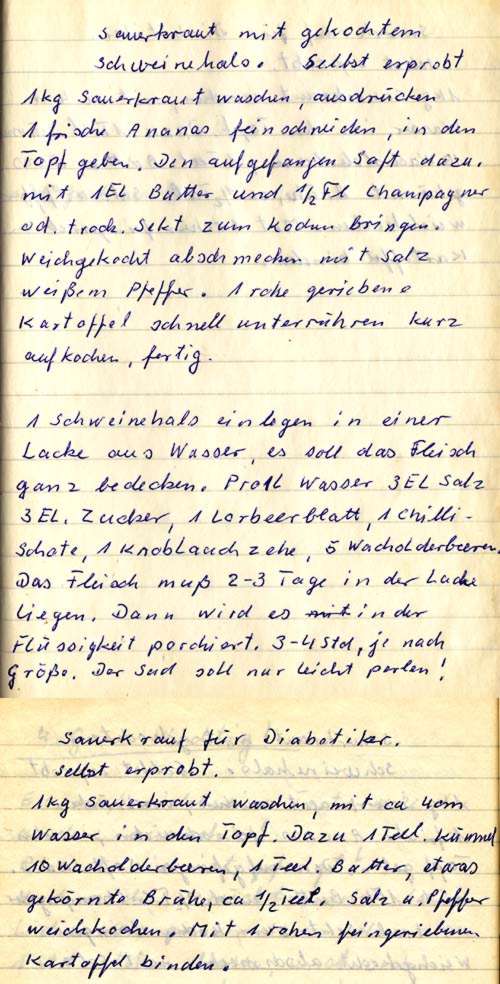 Sauerkraut mit gekochtem
Schweinehals. Selbst erprobt
1kg Sauerkraut waschen, ausdrücken
1 frische Ananas feinschneiden, in den
Topf geben. Den aufgefangen Saft dazu.
mit 1EL Butter und 1/2 Fl Champagner
od. trock. Sekt zum Kochen bringen.
Weichgekocht abschmecken mit Salz
weißem Pfeffer. 1 rohe geriebene
Kartoffel schnell unterrühren kurz
aufkochen, fertig.
1 Schweinehals einlegen in einer
Lacke aus Wasser, es soll das Fleisch
ganz bedecken. Pro 1l Wasser 3EL Salz
3EL. Zucker, 1 Lorbeerblatt, 1 Chilli-
Schote, 1 Knoblauchzehe, 5 Wacholderbeeren.
Das Fleisch muß 2-3 Tage in der Lacke
liegen. Dann wird es in der
Flüssigkeit porchiert. 3-4 Std, je nach
Größe. Der Sud soll nur leicht perlen!
Sauerkrauf für Diabetiker.
Selbst erprobt.
1kg Sauerkraut waschen, mit ca 4cm
Wasser in den Topf. Dazu 1 Teel. Kümmel
10 Wacholderbeeren, 1 Teel. Butter, etwas
gekörnte Brühe, ca 1/2 Teel. Salz u. Pfeffer
weichkochen. Mit 1 rohen feingeriebenen
Kartoffel binden.